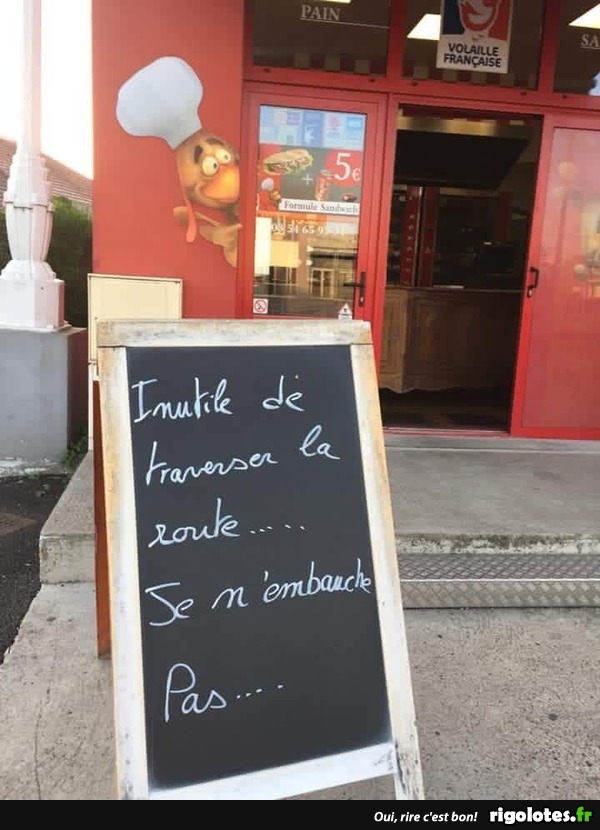 PAIN
SA
VOLAILLE
FRANÇAISE
+ 5€
Formule Sandwich
Inutile de
traverser la
route.....
Je n'embauche
Pas....
Oui, rire c'est bon! rigolotes.fr